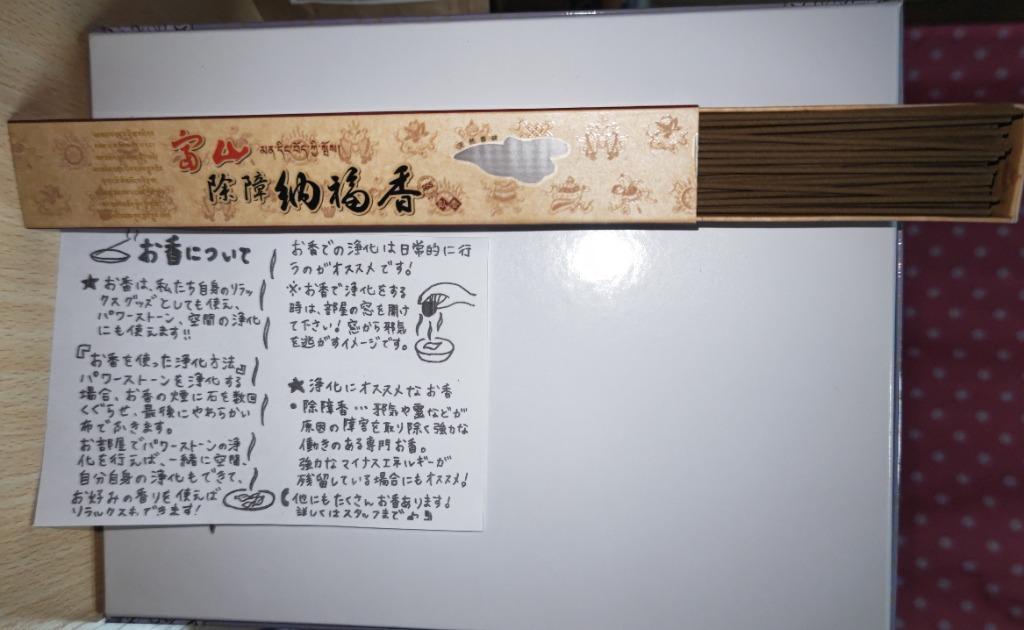 富山
除障 納福香
お香について
★お香は、私たち自身のリラッ
クスグッズとしても使え、
パワーストーン、空間の浄化
にも使えます!!
『お香を使った浄化方法』
パワーストーンを浄化する
場合、お香の煙に石を数回
くぐらせ、最後にやわらかい
布でふきます。
お部屋でパワーストーンの浄
化を行えば、一緒に空間、
自分自身の浄化もできて、
お好みの香りを使えば
リラックスもできます!
お香での浄化は日常的に行
うのがオススメです!
※お香で浄化をする
時は、部屋の窓を開け
て下さい!窓から邪気
を逃がすイメージです。
★浄化にオススメなお香
・除障香…邪気や霊などが
原因の障害を取り除く強力な
働きのある専門お香。
強力なマイナスエネルギーが
残留している場合にもオススメ!
他にもたくさんお香あります!
詳しくはスタッフまで